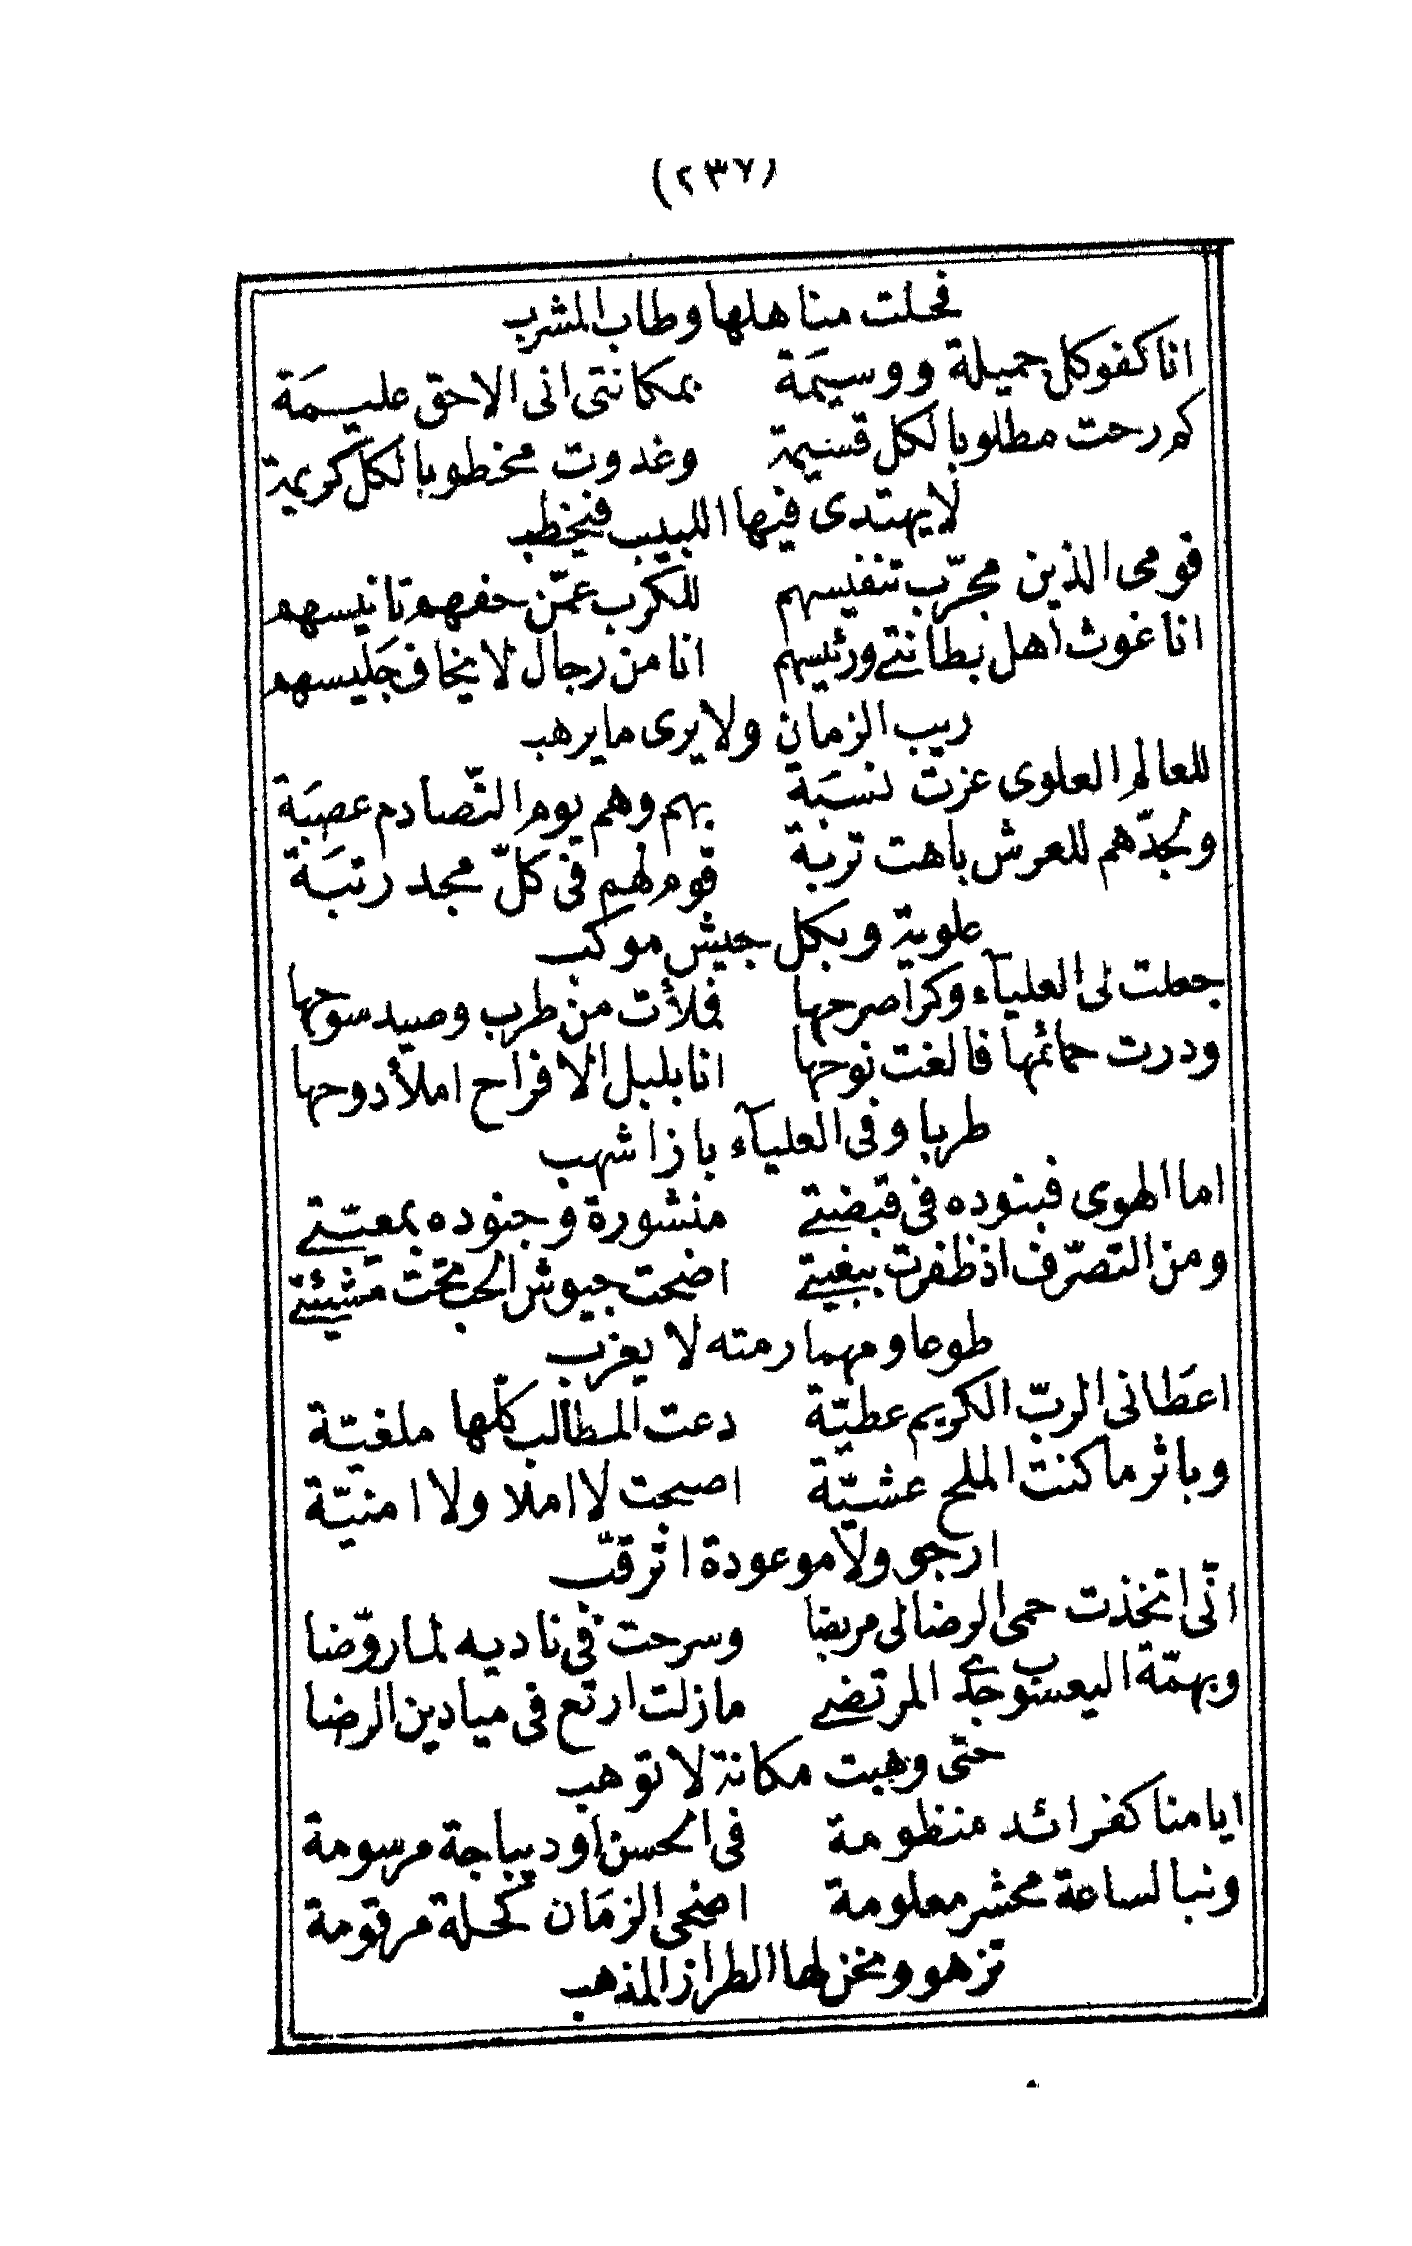 (٢٣٧)
فحلت مناهلها وطاب المشرب
انا كفو كل جميلة ووسيمة بمكانتى انى الاحق عليمة
كم رحت مطلوبا لكل قسيمة وغدوت مخطوبا لكل كريمة
لا يهتدى فيها اللبيب فيخطب
قومى الذين مجرّب تنفيسهم للكرب عمّن حفهم تانيسهم
انا غوث أهل بطانتى ورئيسهم انا من رجال لا يخاف جليسهم
ريب الزمان ولا يرى ما يرهب
للعالم العلوى عزت نسبة بهم وهم يوم التّصادم عصبة
وبجدّهم للعرش باهت تربة قوم لهم فى كلّ مجد رتبة
علوية وبكل جيش موكب
جعلت لى العليآء وكرا صرحها فملأت من طرب وصيد سوحها
ودرت حمائمها فالغت نوحها انا بلبل الافراح املأ دوحها
طربا وفى العليآء باز اشهب
اما الهوى فبنوده فى قبضتى منشورة وجنوده بمعيّتى
ومن التصرّف اذ ظفرت ببغيتى اضحت جيوش الحب تحت مشيئتى
طوعا ومهما رمته لا يعزب
اعطانى الربّ الكريم عطيّة دعت المطالب كلّها ملغيّة
وباثر ما كنت الملح عشيّة اصبحت لا املا ولا امنيّة
ارجو ولا موعودة اترقّب
انّى اتخذت حمى الرضا لى مربضا وسرحت فى ناديه لما روّضا
وبهمّة اليعسوب جدى المرتضى مازلت ارتع فى ميادين الرضا
حتى وهبت مكانة لا توهب
ايامنا كفرائد منظومة فى الحسن او ديباجة مرسومة
ونبا لساعة محشر معلومة اضحى الزمان كحلة مرقومة
تزهو ونحن لها الطراز المذهب